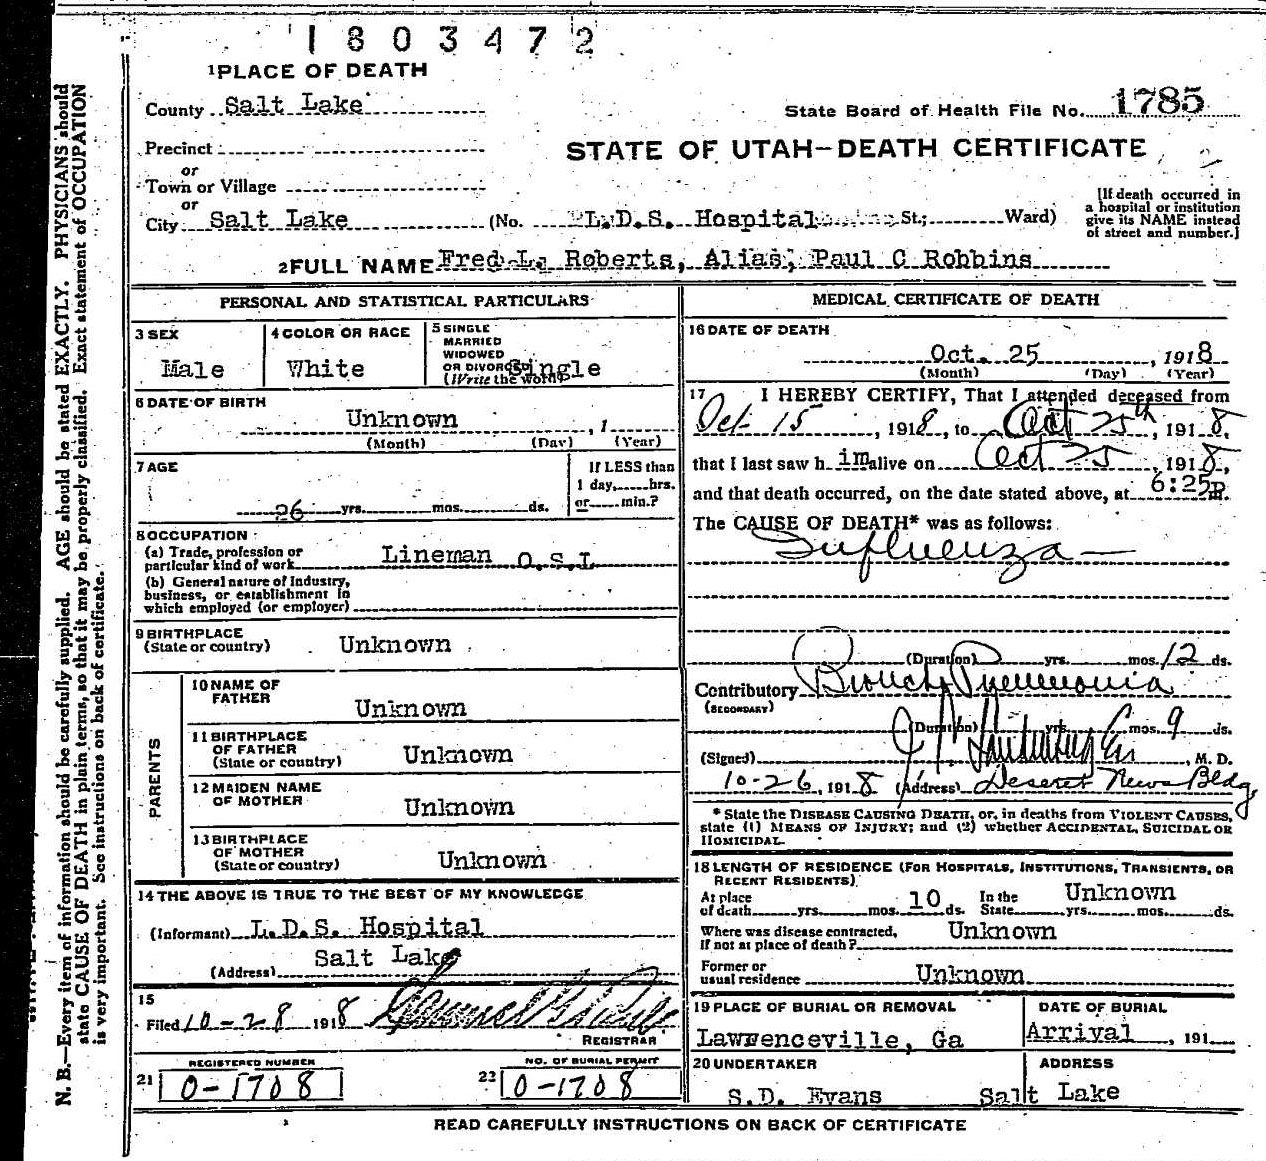 1803472
1 PLACE OF DEATH
County Salt Lake
State Board of Health File No. 1785
Precinct
or
Town or Village
or
STATE OF UTAH—DEATH CERTIFICATE
City Salt Lake (No. L.D.S. Hospital St.; Ward)
[If death occurred in
a hospital or institution
give its NAME instead
of street and number.]
2 FULL NAME Fred L. Roberts, Alias, Paul C Robbins
PERSONAL AND STATISTICAL PARTICULARS
3 SEX
Male
4 COLOR OR RACE
White
5 SINGLE
MARRIED
WIDOWED
OR DIVORCED
(Write the word)
Single
6 DATE OF BIRTH
Unknown , 1
(Month) (Day) (Year)
7 AGE
26 yrs. mos. ds.
If LESS than
1 day, hrs.
or min.?
8 OCCUPATION
(a) Trade, profession or
particular kind of work Lineman O.S.L
(b) General nature of Industry,
business, or establishment in
which employed (or employer)
9 BIRTHPLACE
(State or country) Unknown
PARENTS
10 NAME OF
FATHER
Unknown
11 BIRTHPLACE
OF FATHER
(State or country) Unknown
12 MAIDEN NAME
OF MOTHER
Unknown
13 BIRTHPLACE
OF MOTHER
(State or country) Unknown
14 THE ABOVE IS TRUE TO THE BEST OF MY KNOWLEDGE
(Informant) L.D.S. Hospital
(Address) Salt Lake
15
Filed 10-28 1918 Samuel G.
REGISTRAR
REGISTERED NUMBER
21 0-1708
NO. OF BURIAL PERMIT
22 0-1708
MEDICAL CERTIFICATE OF DEATH
16 DATE OF DEATH
Oct. 25 , 1918
(Month) (Day) (Year)
17 I HEREBY CERTIFY, That I attended deceased from
Oct 15 , 1918, to Oct 25th, 1918,
that I last saw him alive on Oct 25, 1918,
and that death occurred, on the date stated above, at 6:25P m.
The CAUSE OF DEATH* was as follows:
Influenza
(Duration) yrs. mos. 12 ds.
Contributory Broncho Pneumonia
(SECONDARY)
(Duration) yrs. mos. 9 ds.
(Signed) , M. D.
10-26, 1918 (Address) Deseret News Bldg
* State the DISEASE CAUSING DEATH, or, in deaths from VIOLENT CAUSES,
state (1) MEANS OF INJURY; and (2) whether ACCIDENTAL, SUICIDAL OR
HOMICIDAL.
18 LENGTH OF RESIDENCE (FOR HOSPITALS, INSTITUTIONS, TRANSIENTS, OR
RECENT RESIDENTS)
At place
of death yrs. mos. 10 ds.
In the
State yrs. mos. ds. Unknown
Where was disease contracted,
if not at place of death? Unknown
Former or
usual residence Unknown
19 PLACE OF BURIAL OR REMOVAL
Lawrenceville, Ga
DATE OF BURIAL
Arrival , 191
20 UNDERTAKER
S.D. Evans
ADDRESS
Salt Lake
READ CAREFULLY INSTRUCTIONS ON BACK OF CERTIFICATE
N. B.—Every item of information should be carefully supplied. AGE should be stated EXACTLY. PHYSICIANS should
state CAUSE OF DEATH in plain terms, so that it may be properly classified. Exact statement of OCCUPATION
is very important. See instructions on back of certificate.